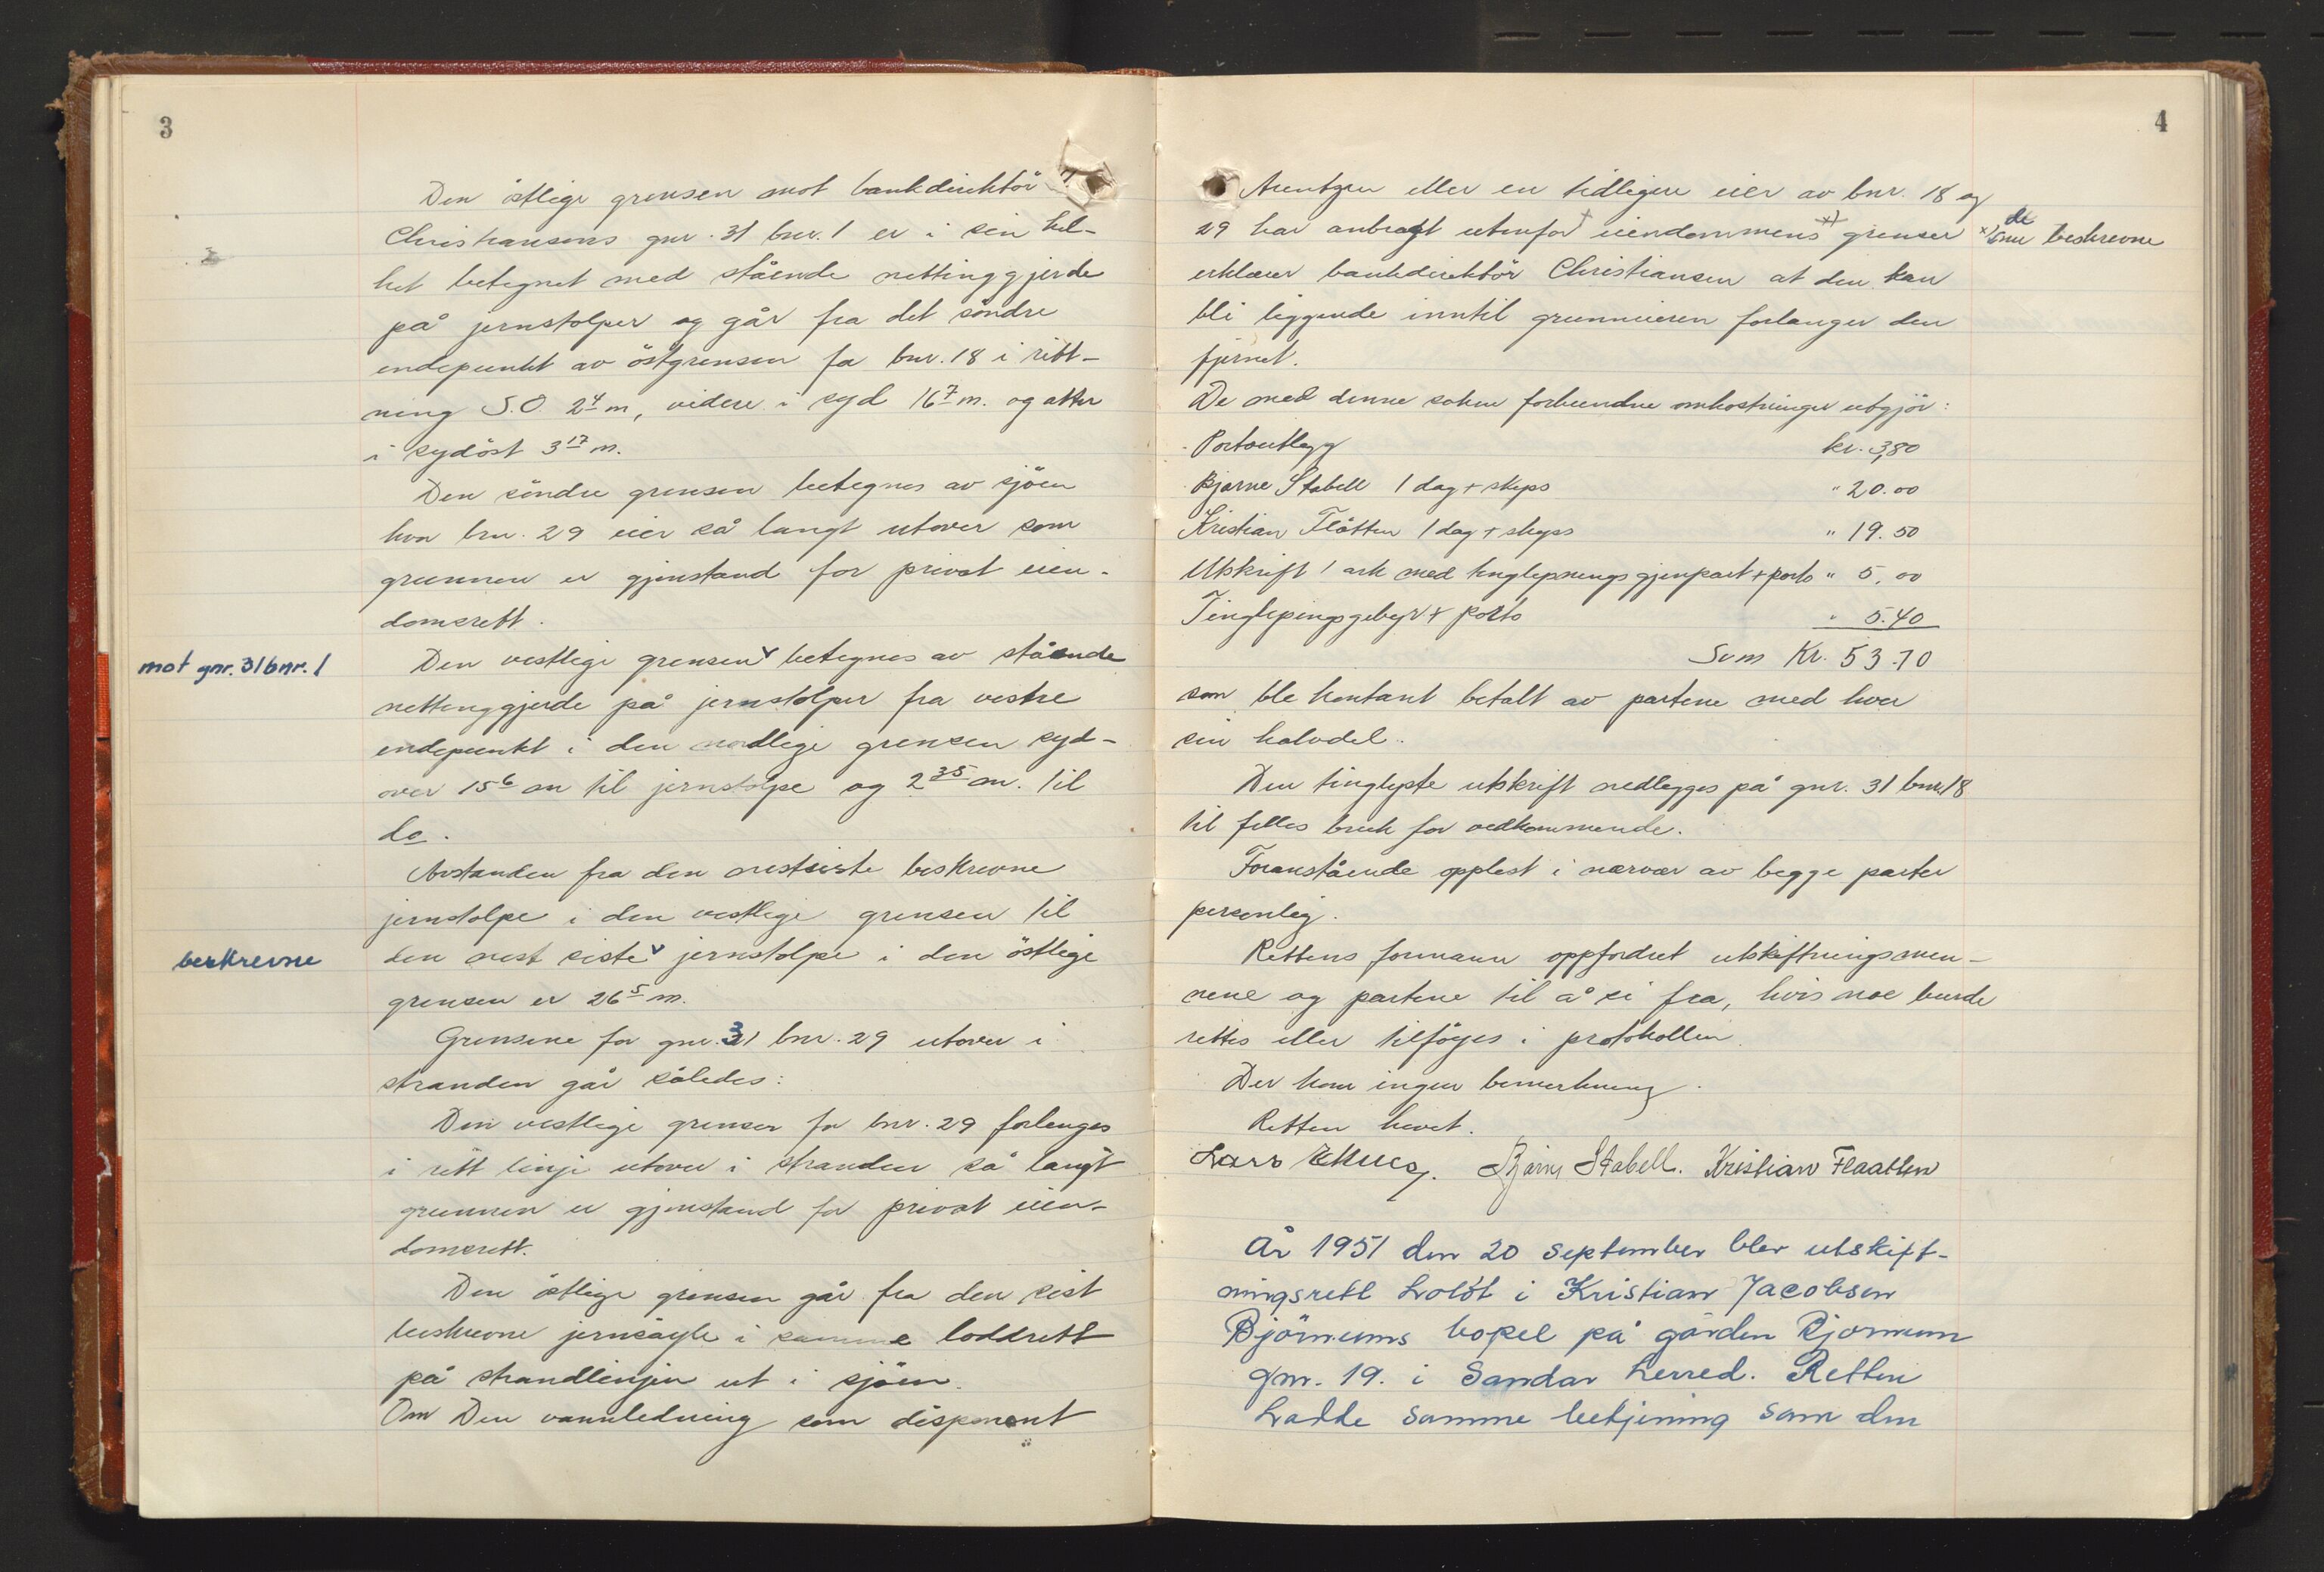 3
Den östlige grensen mot bankdirektör
Christiansens gnr. 31 bnr. 1 er i sin hel-
het betegnet med stående nettinggjerde
på jernstolper og går fra det söndre
endepunkt av östgrensen for bnr. 18 i rett-
ning S.O. 2⁴ m, videre i syd 16⁷ m. og atter
i sydöst 3¹⁷ m.
Den söndre grensen betegnes av sjöen
hvor bnr. 29 eier så langt utover som
grunnen er gjenstand for privat eien-
domsrett.
mot gnr. 31 bnr. 1
Den vestlige grensen ᵛ betegnes av stående
nettinggjerde på jernstolper fra vestre
endepunkt i den nordlige grensen syd-
over 15⁶ m til jernstolpe og 2³⁵ m. til
do.
Avstanden fra den nestsiste beskrevne
jernstolpe i den vestlige grensen til
beskrevne
den nest siste ᵛ jernstolpe i den östlige
grensen er 26⁵ m.
Grensene for gnr. 31 bnr. 29 utover i
stranden går således:
Den vestlige grensen for bnr. 29 forlenges
i rett linje utover i stranden så langt
grunnen er gjenstand for privat eien-
domsrett.
Den östlige grensen går fra den sist
beskrevne jernsöyle i samme loddrett
på strandlinjen ut i sjöen.
Om Den vannledning som disponent
4
Arentzen eller en tidligere eier av bnr. 18 og
29 har anbragt utenfor eiendommens x) grenser
x) de nu beskrevne
erklærer bankdirektör Christiansen at den kan
bli liggende inntil grunneieren forlanger den
fjernet.
De med denne saken forbundne omkostninger utgjör:
Portoutlegg kr. 3,80
Bjarne Stabell 1 dag + skyss " 20.00
Kristian Flåtten 1 dag + skyss " 19.50
Utskrift 1 ark med tinglysnings gjenpart + porto " 5,00
Tinglysingsgebyr + porto " 5.40
Sum Kr. 53.70
som ble kontant betalt av partene med hver
sin halvdel.
Den tinglyste utskrift nedlegges på gnr. 31 bnr. 18
til felles bruk for vedkommende.
Foranstående opplest i nærvær av begge parter
personlig.
Rettens formann oppfordret utskiftningsmen-
nene og partene til å si fra, hvis noe burde
rettes eller tilföyes i protokollen.
Der kom ingen bemerkning.
Retten hevet.
Lars Bjarne Stabell. Kristian Flaatten
År 1951 den 20 september blev utskift-
ningsrett holdt i Kristian Jacobsen
Björnums bopel på gården Bjornum
gnr. 19. i Sandar herred. Retten
hadde samme betjening som den